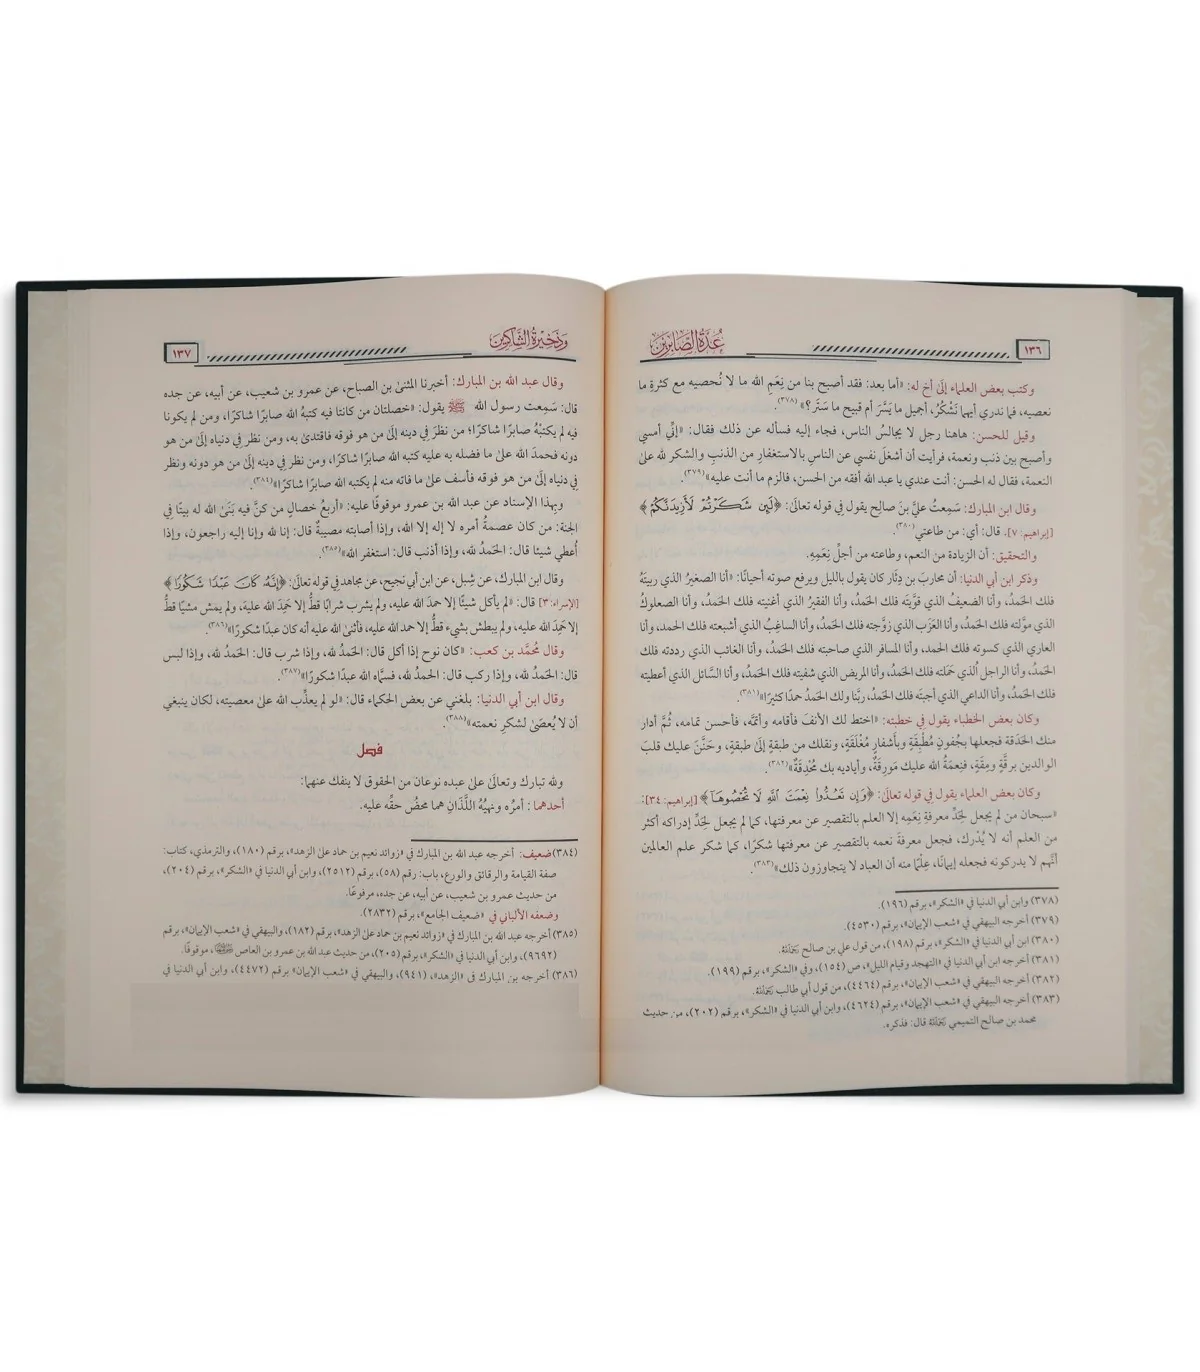 ١٣٦
عُدَّةُ الصَّابِرِين
وكتب بعض العلماء إلىٰ أخ له: «أما بعد: فقد أصبح بنا من نِعَمِ الله ما لا نُحصيه مع كثرةِ ما
نعصيه، فما ندري أيهما نَشْكُرُ، أجميل ما يَسَّرَ أم قبيح ما سَتَر؟»(٣٧٨).
وقيل للحسن: هاهنا رجل لا يجالسُ الناس، فجاء إليه فسأله عن ذلك فقال: «إنِّي أمسي
وأصبح بين ذنب ونعمة، فرأيت أن أشغلَ نفسي عن الناسِ بالاستغفارِ من الذنبِ والشكر لله علىٰ
النعمة، فقال له الحسن: أنت عندي يا عبد الله أفقه من الحسن، فالزم ما أنت عليه»(٣٧٩).
وقال ابن المبارك: سَمِعتُ عليَّ بنَ صالحٍ يقول في قوله تعالىٰ: ﴿لَئِن شَكَرْتُمْ لَأَزِيدَنَّكُمْ﴾
[إبراهيم: ٧]. قال: أي: من طاعتي(٣٨٠).
والتحقيق: أن الزيادة من النعم، وطاعته من أجلِّ نِعَمِهِ.
وذكر ابن أبي الدنيا: أن محاربَ بن دِثَار كان يقول بالليل ويرفع صوته أحيانًا: «أنا الصغيرُ الذي ربيتهُ
فلك الحَمدُ، وأنا الضعيفُ الذي قوَّيتَه فلك الحَمدُ، وأنا الفقيرُ الذي أغنيته فلك الحَمدُ، وأنا الصعلوكُ
الذي موَّلته فلك الحَمدُ، وأنا العَزَب الذي زوَّجته فلك الحَمدُ، وأنا الساغِبُ الذي أشبعته فلك الحمد، وأنا
العاري الذي كسوته فلك الحمد، وأنا المسافر الذي صاحبته فلك الحَمدُ، وأنا الغائب الذي رددته فلك
الحَمدُ، وأنا الراجل الُّذي حَملته فلك الحَمدُ، وأنا المريض الذي شفيته فلك الحَمدُ، وأنا السَّائل الذي أعطيته
فلك الحَمدُ، وأنا الداعي الذي أجبتَه فلك الحَمدُ، ربَّنا ولك الحَمدُ حمدًا كثيرًا»(٣٨١).
وكان بعض الخطباء يقول في خطبته: «اختط لك الأنفَ فأقامه وأتمَّه، فأحسن تمامه، ثُمَّ أدار
منك الحَدَقة فجعلها بِجُفونٍ مُطْبِقَةٍ وبأشفارٍ مُعْلَقَةٍ، ونقلك من طبقةٍ إلىٰ طبقةٍ، وحَنَّنَ عليك قلبَ
الوالدين برقَّةٍ ومِقَةٍ، فنِعمَةُ الله عليك مَورِقَةٌ، وأياديه بك مُحْدِقَةٌ»(٣٨٢).
وكان بعض العلماء يقول في قوله تعالىٰ: ﴿وَإِن تَعُدُّوا نِعْمَتَ ٱللَّهِ لَا تُحْصُوهَآ﴾ [إبراهيم: ٣٤]:
«سبحان من لم يجعل لِحَدِّ معرفةِ نِعَمِه إلا العلم بالتقصير عن معرفتها، كما لم يجعل لِحَدِّ إدراكه أكثر
من العلم أنه لا يُدْرك، فجعل معرفةَ نعمه بالتقصير عن معرفتها شكرًا، كما شكر علم العالمين
أنَّهم لا يدركونه فجعله إيمانًا، عِلْمًا منه أن العباد لا يتجاوزون ذلك»(٣٨٣).
(٣٧٨) وابن أبي الدنيا في «الشكر»، برقم (١٩٦).
(٣٧٩) أخرجه البيهقي في «شعب الإيمان»، برقم (٤٥٣٠).
(٣٨٠) ابن أبي الدنيا في «الشكر»، برقم (١٩٨)، من قول علي بن صالح رَحِمَهُ اللهُ.
(٣٨١) أخرجه ابن أبي الدنيا في «التهجد وقيام الليل»، ص (١٥٤)، وفي «الشكر»، برقم (١٩٩).
(٣٨٢) أخرجه البيهقي في «شعب الإيمان»، برقم (٤٤٦٤)، من قول أبي طالب رَحِمَهُ اللهُ.
(٣٨٣) أخرجه البيهقي في «شعب الإيمان»، برقم (٤٦٢٤)، وابن أبي الدنيا في «الشكر»، برقم (٢٠٢)، من حديث
محمد بن صالح التميمي رَحِمَهُ اللهُ قال: فذكره.
وَذَخِيرَةُ الشَّاكِرِين
١٣٧
وقال عبد الله بن المبارك: أخبرنا المثنىٰ بن الصباح، عن عمرو بن شعيب، عن أبيه، عن جده
قال: سَمِعت رسول الله ﷺ يقول: «خصلتان من كانتا فيه كتبهُ الله صابرًا شاكرًا، ومن لم يكونا
فيه لم يكتبْهُ صابرًا شاكرًا؛ من نظرَ في دينه إلىٰ من هو فوقه فاقتدىٰ به، ومن نظر في دنياه إلىٰ من هو
دونه فحمدَ الله علىٰ ما فضله به عليه كتبه الله صابرًا شاكرًا، ومن نظر في دينه إلىٰ من هو دونه ونظر
في دنياه إلىٰ من هو فوقه فأسف علىٰ ما فاته منه لم يكتبه الله صابرًا شاكرًا»(٣٨٤).
وبِهذا الإسناد عن عبد الله بن عمرو موقوفًا عليه: «أربعُ خصال من كنَّ فيه بَنَىٰ الله له بيتًا في
الجنة: من كان عصمةُ أمره لا إله إلا الله، وإذا أصابته مصيبةٌ قال: إنا لله وإنا إليه راجعون، وإذا
أُعطي شيئا قال: الحَمدُ لله، وإذا أذنب قال: استغفر الله»(٣٨٥).
وقال ابن المبارك، عن شِبل، عن ابن أبي نجيح، عن مجاهد في قوله تعالىٰ: ﴿إِنَّهُۥ كَانَ عَبْدًا شَكُورًا﴾
[الإسراء: ٣] قال: «لم يأكل شيئًا إلا حمدَ الله عليه، ولم يشرب شرابًا قطُّ إلا حَمِدَ الله عليه، ولم يمش مشيًا قطُّ
إلا حَمِدَ الله عليه، ولم يبطش بشيء قطُّ إلا حمد الله عليه، فأثنىٰ الله عليه أنه كان عبدًا شكورًا»(٣٨٦).
وقال مُحمَّد بن كعب: «كان نوح إذا أكل قال: الحَمدُ لله، وإذا شرب قال: الحَمدُ لله، وإذا لبس
قال: الحَمدُ لله، وإذا ركب قال: الحمدُ لله، فسمَّاه الله عبدًا شكورًا»(٣٨٧).
وقال ابن أبي الدنيا: بلغني عن بعض الحكماء قال: «لو لم يعذِّب الله علىٰ معصيته، لكان ينبغي
أن لا يُعصَىٰ لشكرِ نعمته»(٣٨٨).
فصل
ولله تبارك وتعالىٰ علىٰ عبده نوعان من الحقوق لا ينفك عنهما:
أحدهما : أمرُه ونهيُهُ اللَّذَانِ هما محضُ حقِّه عليه.
(٣٨٤) ضعيف: أخرجه عبد الله بن المبارك في «زوائد نعيم بن حماد علىٰ الزهد»، برقم (١٨٠)، والترمذي، كتاب:
صفة القيامة والرقائق والورع، باب: رقم (٥٨)، برقم (٢٥١٢)، وابن أبي الدنيا في «الشكر»، برقم (٢٠٤)،
من حديث عمرو بن شعيب، عن أبيه، عن جده، مرفوعًا.
وضعفه الألباني في «ضعيف الجامع»، برقم (٢٨٣٢).
(٣٨٥) أخرجه عبد الله بن المبارك في «زوائد نعيم بن حماد علىٰ الزهد»، برقم (١٨٢)، والبيهقي في «شعب الإيمان»، برقم
(٩٦٩٢)، وابن أبي الدنيا في «الشكر»، برقم (٢٠٥)، من حديث عبد الله بن عمرو بن العاص، موقوفًا.
(٣٨٦) أخرجه ابن المبارك في «الزهد»، (٩٤١)، والبيهقي في «شعب الإيمان» برقم (٤٤٧٢)، وابن أبي الدنيا في